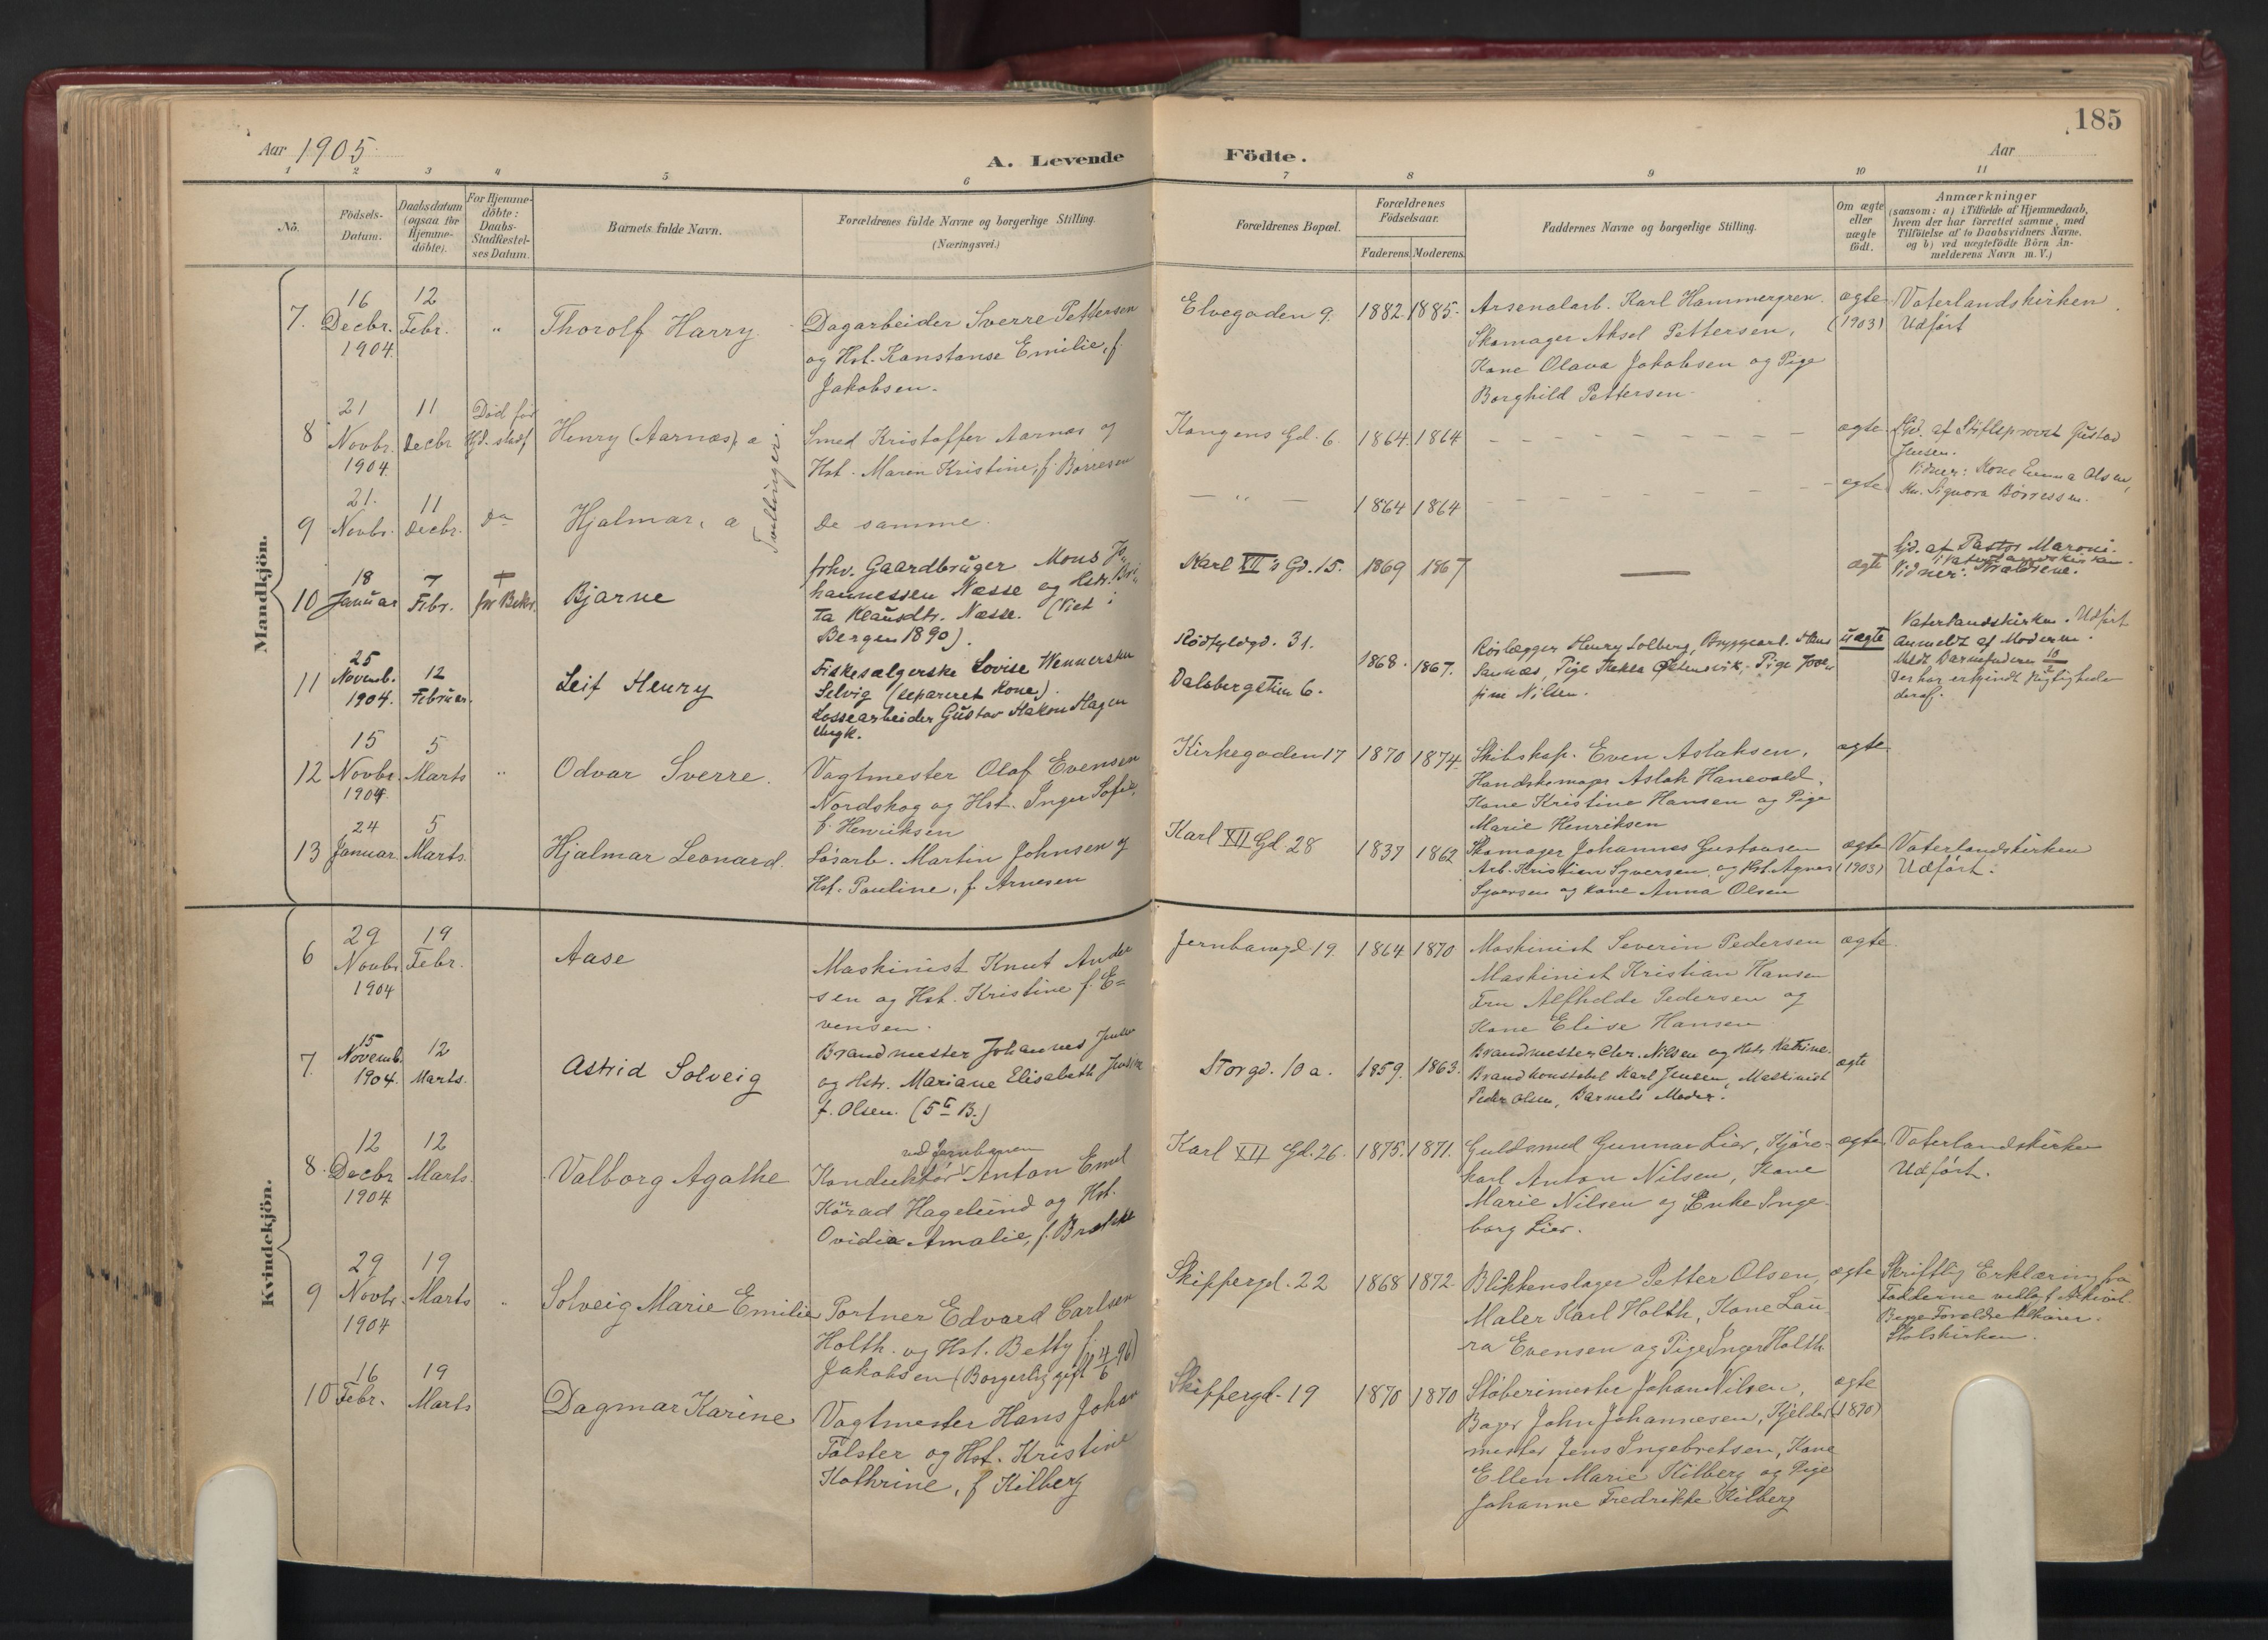 185
Aar 1905
A. Levende Födte.
Aar
1 2 3 4 5 6 7 8 9 10 11
No.
Födsels-Datum.
Daabsdatum (ogsaa for Hjemmedöbte).
For Hjemmedöbte: Daabs-Stadfæstelses Datum.
Barnets fulde Navn.
Forældrenes fulde Navne og borgerlige Stilling.
(Næringsvei.)
Forældrenes Bopæl.
Forældrenes Födselsaar.
Faderens. Moderens.
Faddernes Navne og borgerlige Stilling.
Om ægte eller uægte födt.
Anmærkninger
(saasom: a) i Tilfælde af Hjemmedaab,
hvem der har forrettet samme, med
Tilföielse af to Daabsvidners Navne,
og b) ved uægtefödte Börn Anmelderens Navn m. V.)
Mandkjön.
7. 16 Decbr. 1904. 12 Febr. " Thorolf Harry
Dagarbeider Sverre Pettersen
og Hst. Konstanse Emilie, f.
Jakobsen.
Elvegaden 9. 1882 1885.
Arsenalarb. Karl Hammergren.
Skomager Aksel Pettersen,
Kone Olava Jakobsen og Pige
Borghild Pettersen.
ægte (1903)
Vaterlandskirken
Udført
8 21 Novbr. 1904. 11 Decbr Död før Hd. stadf
Henry (Aarnæs), a
Tvillinger
Smed Kristoffer Aarnæs og
Hst. Maren Kristine, f. Børresen
Kongens Gd. 6. 1864. 1864
ægte
Hjd. af Stiftsprovst Gustav
Jensen.
Vidner: Kone Emma Olsen,
Kn. Signora Børressen.
9 21. Novbr. 11 Decbr. do
Hjalmar, a
De samme.
— " — 1864 1864
ægte
10 18 Januar 7 Febr. † før Bekr.
Bjarne
fhv. Gaardbruger Mons Johannessen
Næsse og Hstr. Brita
Klausdtr. Næsse. (Viet i
Bergen 1890).
Karl XII's Gd. 15. 1869 1867
—
ægte
Hjd. af Pastor Maroni.
i Vaterlandskirken.
Vidner: Forældrene.
11 25 Novemb. 1904. 12 Februar.
Leif Henry
Fiskesælgerske Lovise Wennersen
Selvig (separeret Kone).
Lossearbeider Gustav Hakon Hagen
Ungk.
Rødfyldgd. 31.
Dalsbergstien 6.
1868. 1867.
Rørlægger Henry Solberg, Bryggearb. Hans
Sannæs, Pige Hakla Pige Josefine
Nilsen.
uægte
Vaterlandskirken. Udført
Anmeldt af Moderen.
Meldt Barnefaderen
der har erkjendt Rigtigheden
deraf.
12 15 Novbr. 1904. 5 Marts "
Odvar Sverre.
Vagtmester Olaf Evensen
Nordskog og Hst. Inger Sofie,
f. Henriksen
Kirkegaden 17 1870 1874.
Skibskap. Even Aslaksen,
Handskemager Aslak Hanevold,
Kone Kristine Hansen og Pige
Marie Henriksen
ægte
13 24 Januar. 5 Marts.
Hjalmar Leonard.
Løsarb. Martin Johnsen og
Hst. Pauline, f. Arnesen
Karl XII Gd. 28 1837 1862
Skomager Johannes Gustavsen
Arb. Kristian Syversen og Hst. Agnes
Syversen og Kone Anna Olsen
ægte (1903)
Vaterlandskirken
Udført.
Kvindekjön.
6 29 Novbr 1904 19 Febr.
Aase
Maskinist Knut Andersen
og Hst. Kristine f. Evensen.
Jernbanegd. 19. 1864 1870
Maskinist Severin Pedersen
Maskinist Kristian Hansen
Fru Alfhilde Pedersen og
Kone Elise Hansen
ægte
7. 15 Novemb. 1904. 12 Marts.
Astrid Solveig
Brandmester Johannes Jensen
og Hstr. Mariane Elisabeth
f. Olsen. (5te B.)
Storgd. 10 a. 1859. 1863.
Brandmester Chr. Nilsen og Hstr. Katrine.
Brandkonstabel Karl Jensen, Maskinist
Peder Olsen, Barnets Moder.
ægte
8. 12 Decbr 1904 12 Marts.
Valborg Agathe
Konduktør ved Jernbanen Anton Emil
Konrad Hagelund og Hst.
Ovidia Amalie, f. Brække
Karl XII Gd. 26. 1875. 1871.
Guldsmed Gunnar Lier, Kjørekarl
Anton Nilsen, Kone
Marie Nilsen og Enke Ingeborg
Lier.
ægte
Vaterlandskirken
Udført.
9 29 Novbr. 1904 19 Marts "
Solveig Marie Emilie
Portner Edvard Carlsen
Holth. og Hst. Betty f.
Jakobsen (Borgerlig gift 4/6 96)
Skippergd. 22 1868 1872.
Blikkenslager Petter Olsen,
Maler Karl Holth, Kone Laura
Evensen og Pige Inger Holth
ægte
Skriftlig Erklæring fra
Fadderne vedlagt Arkivet.
Begge Forældre tilhører
Statskirken.
10 16 Febr. 19 Marts
Dagmar Karine
Vagtmester Hans Johan
Falster og Hst. Kristine
Kathrine, f. Kilberg
Skippergd. 19 1870 1870
Støberimester Johan Nilsen,
Bager John Johannesen, Kjeldermester
Jens Ingebretsen, Kone
Ellen Marie Kilberg og Pige
Johanne Fredrikke Kilberg
ægte (1890)